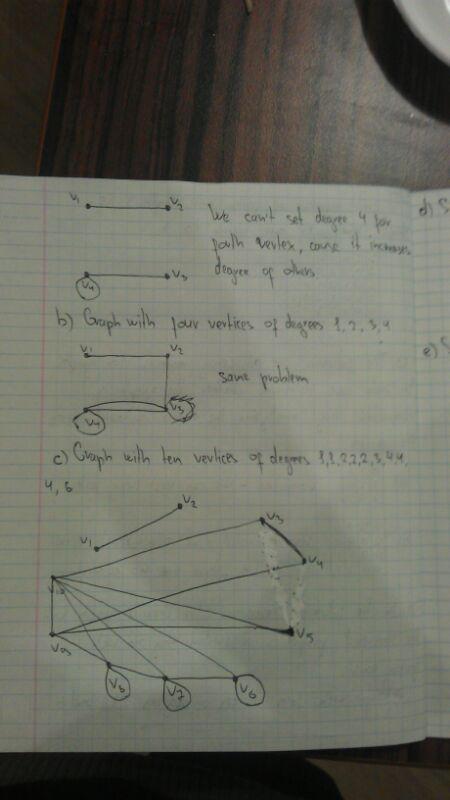 V1 V2
We can't set degree 4 for
path vertex, cause it increases
degree of others
V4 V3
d) S
b) Graph with four vertices of degrees 1, 2, 3, 4
V1 V2
e) S
same problem
V4 V3
c) Graph with ten vertices of degrees 1,1,2,2,2,3,4,4,
4, 6
V1 V2 V3
V4
V10
V5
V9
V8 V7 V6